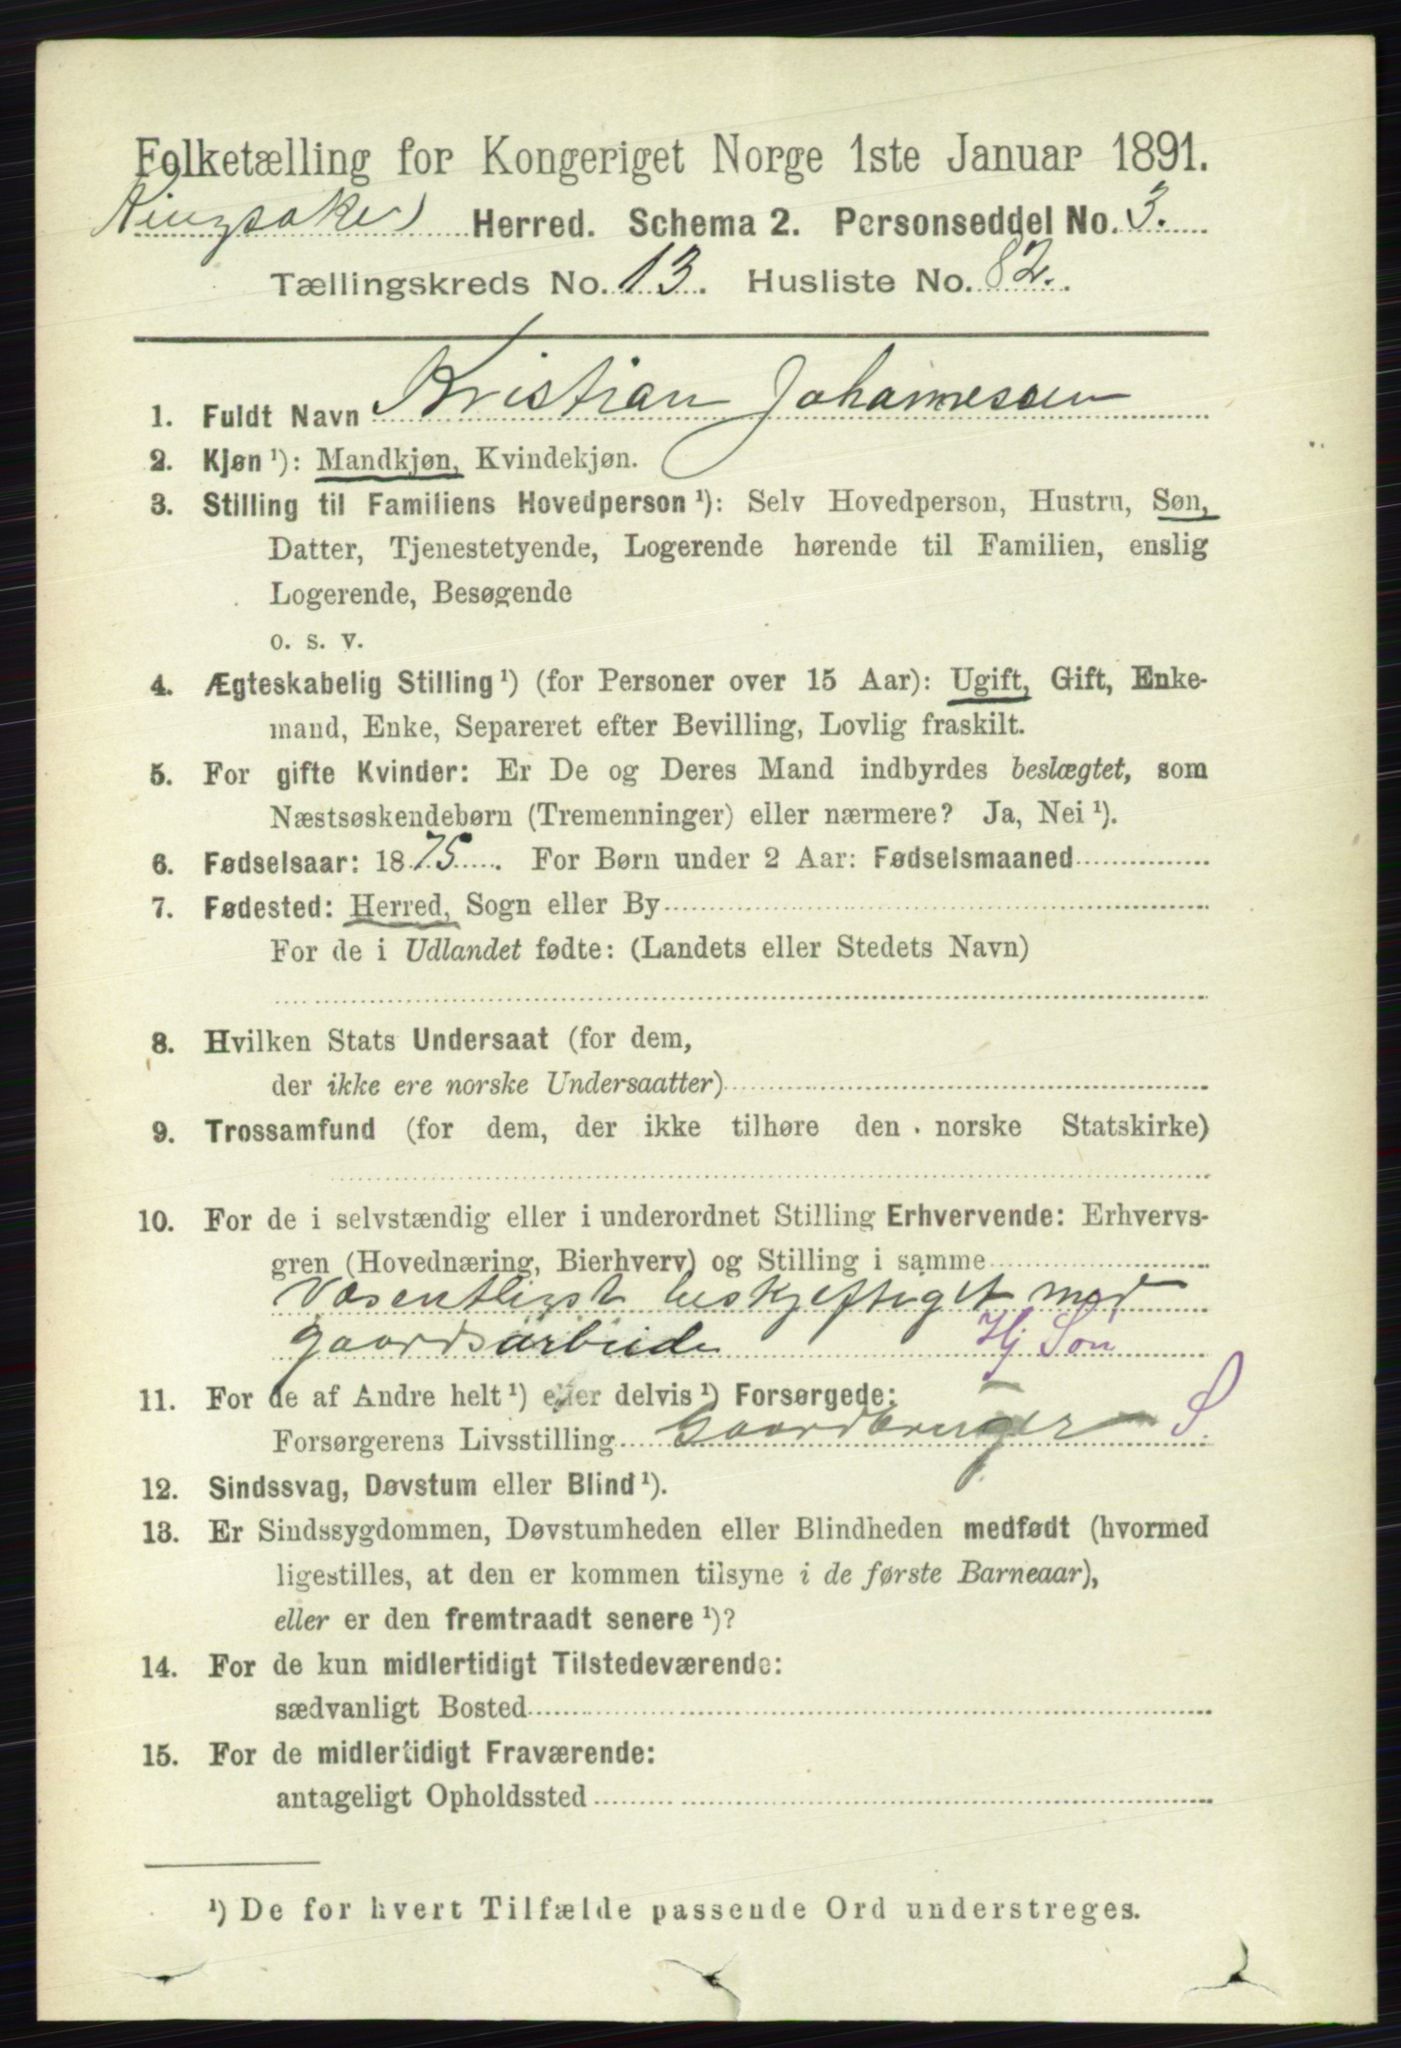 Folketælling for Kongeriget Norge 1ste Januar 1891.
Ringsaker Herred. Schema 2. Personseddel No. 3.
Tællingskreds No. 13. Husliste No. 82.
1. Fuldt Navn Kristian Johannessen
2. Kjøn ¹): Mandkjøn, Kvindekjøn.
3. Stilling til Familiens Hovedperson ¹): Selv Hovedperson, Hustru, Søn,
Datter, Tjenestetyende, Logerende hørende til Familien, enslig
Logerende, Besøgende
o. s. v.
4. Ægteskabelig Stilling ¹) (for Personer over 15 Aar): Ugift, Gift, Enke-
mand, Enke, Separeret efter Bevilling, Lovlig fraskilt.
5. For gifte Kvinder: Er De og Deres Mand indbyrdes beslægtet, som
Næstsøskendebørn (Tremenninger) eller nærmere? Ja, Nei ¹).
6. Fødselsaar: 1875. For Børn under 2 Aar: Fødselsmaaned
7. Fødested: Herred, Sogn eller By
For de i Udlandet fødte: (Landets eller Stedets Navn)
8. Hvilken Stats Undersaat (for dem,
der ikke ere norske Undersaatter)
9. Trossamfund (for dem, der ikke tilhøre den norske Statskirke)
10. For de i selvstændig eller i underordnet Stilling Erhvervende: Erhvervs-
gren (Hovednæring, Bierhverv) og Stilling i samme
Væsentligst beskjeftiget med
gaardsarbeide Hj Søn
11. For de af Andre helt ¹) eller delvis ¹) Forsørgede:
Forsørgerens Livsstilling Gaardbruger S.
12. Sindssvag, Døvstum eller Blind ¹).
13. Er Sindssygdommen, Døvstumheden eller Blindheden medfødt (hvormed
ligestilles, at den er kommen tilsyne i de første Barneaar),
eller er den fremtraadt senere ¹)?
14. For de kun midlertidigt Tilstedeværende:
sædvanligt Bosted
15. For de midlertidigt Fraværende:
antageligt Opholdssted
¹) De for hvert Tilfælde passende Ord understreges.